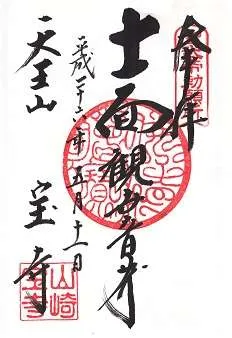 奉拝
十一面観世音𦬇
平成二十六年五月十一日
天王山
宝寺
山崎
宝寺